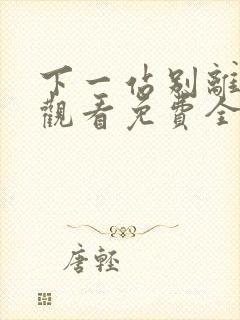 下一站别離
觀看免費全
唐輕